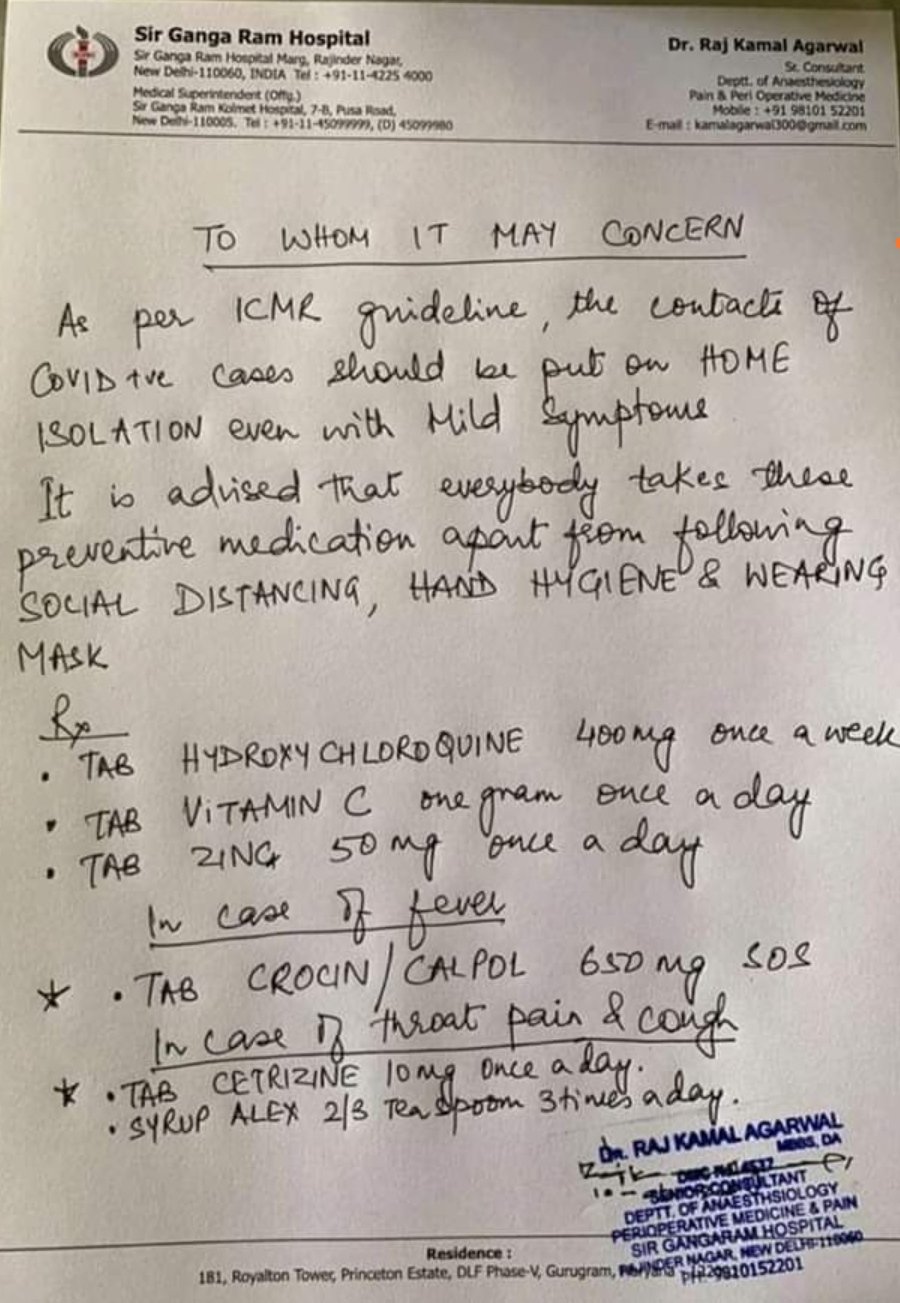 Sir Ganga Ram Hospital
Sir Ganga Ram Hospital Marg, Rajinder Nagar,
New Delhi-110060, INDIA Tel : +91-11-4225 4000
Medical Superintendent (Offg.)
Sir Ganga Ram Kolmet Hospital, 7-B, Pusa Road,
New Delhi-110005. Tel : +91-11-45099999, (D) 45099980
Dr. Raj Kamal Agarwal
Sr. Consultant
Deptt. of Anaesthesiology
Pain & Peri Operative Medicine
Mobile : +91 98101 52201
E-mail : kamalagarwal300@gmail.com
TO WHOM IT MAY CONCERN
As per ICMR guideline, the contacts of
COVID +ve cases should be put on HOME
ISOLATION even with Mild Symptoms
It is advised that everybody takes these
preventive medication apart from following
SOCIAL DISTANCING, HAND HYGIENE & WEARING
MASK
Rx
• TAB HYDROXYCHLOROQUINE 400mg once a week
• TAB VITAMIN C one gram once a day
• TAB ZINC 50 mg once a day
In case of fever
★ • TAB CROCIN/CALPOL 650 mg SOS
In case of throat pain & cough
★ • TAB CETRIZINE 10mg once a day.
• SYRUP ALEX 2/3 Tea spoom 3times a day.
Dr. RAJ KAMAL AGARWAL
MBBS, DA
SENIOR CONSULTANT
DEPTT. OF ANAESTHSIOLOGY
PERIOPERATIVE MEDICINE & PAIN
SIR GANGARAM HOSPITAL
RAJINDER NAGAR, NEW DELHI-110060
PH-9810152201
Residence :
181, Royalton Tower, Princeton Estate, DLF Phase-V, Gurugram, Haryana